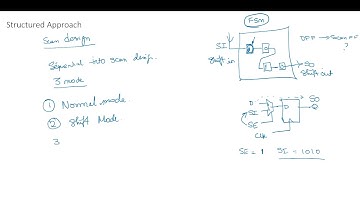 Structured Approach
Scan design
Sequential into scan design.
3 mode
① Normal mode
② Shift Mode
3
FSM
SI
Shift in
D
SO
Shift out
DFF → Scan FF
?
D
SI
SE
D
Q
SO
Clk
SE = 1 SI = 1010